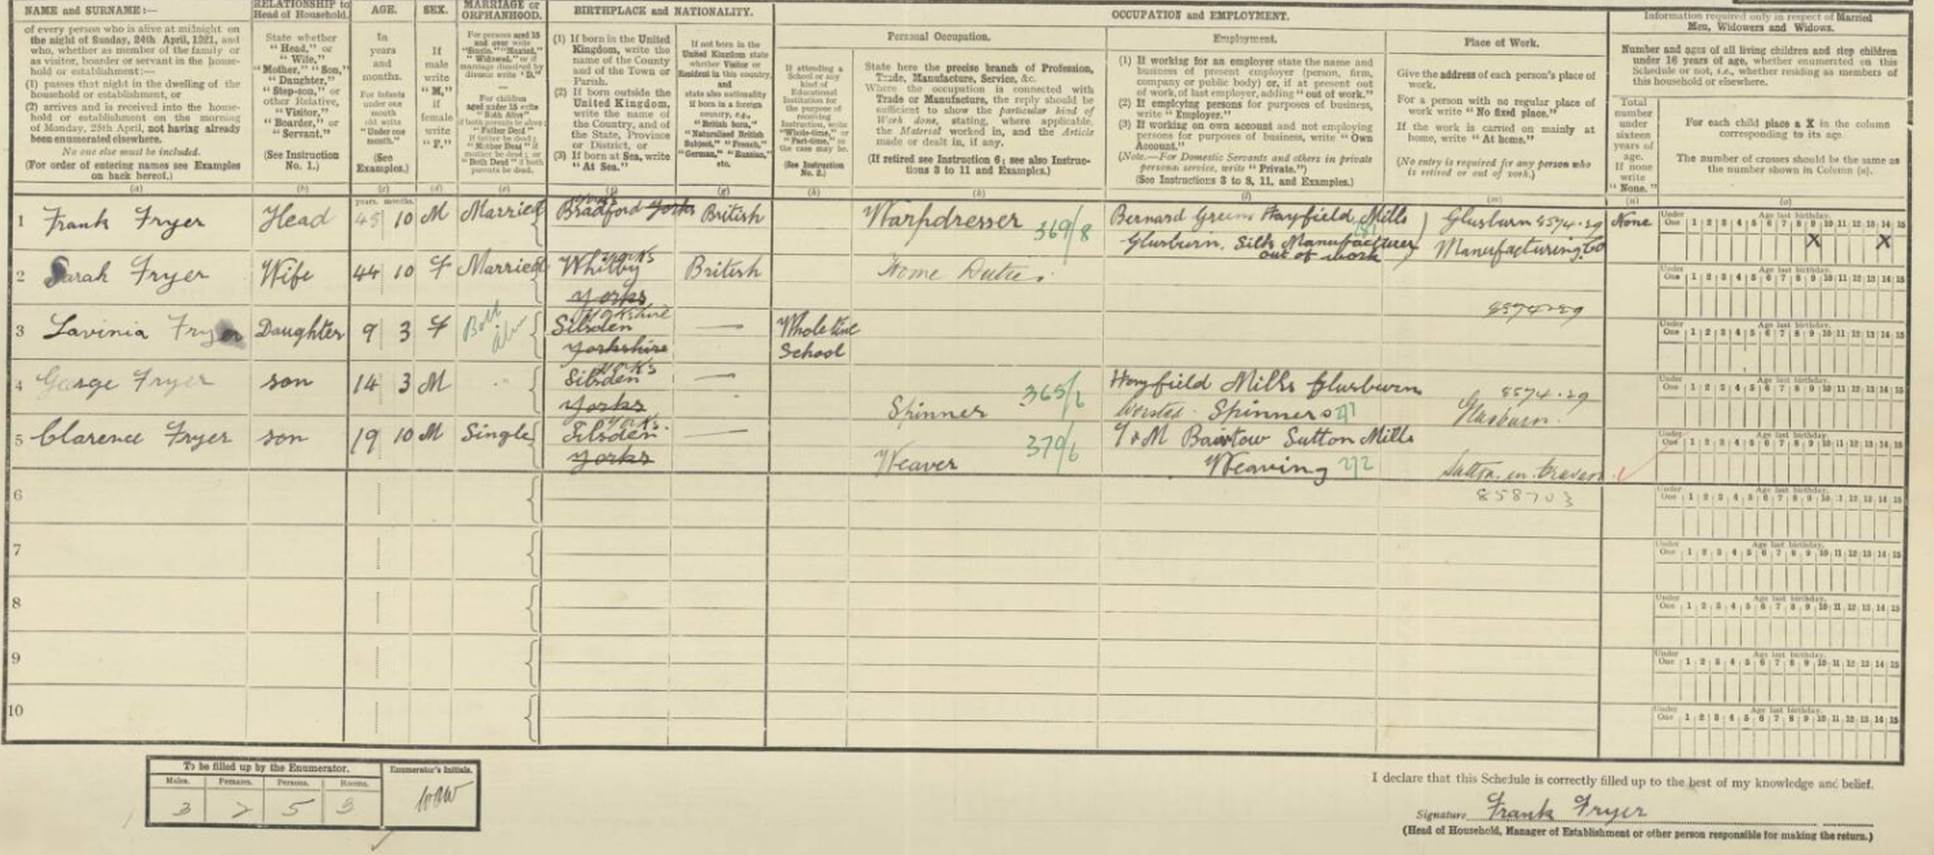 NAME and SURNAME:—
of every person who is alive at midnight on
the night of Sunday, 24th April, 1921, and
who, whether as member of the family or
as visitor, boarder or servant in the house-
hold or establishment:—
(1) passes that night in the dwelling of the
household or establishment, or
(2) arrives and is received into the house-
hold or establishment on the morning
of Monday, 25th April, not having already
been enumerated elsewhere.
No one else must be included.
(For order of entering names see Examples
on back hereof.)
(a)
RELATIONSHIP to
Head of Household.
State whether
"Head," or
"Wife,"
"Mother," "Son,"
"Daughter,"
"Step-son," or
other Relative,
"Visitor,"
"Boarder," or
"Servant."
(See Instruction
No. 1.)
(b)
AGE.
In
years
and
months.
For infants
under one
month
old write
"Under one
month."
(See
Examples.)
(c)
SEX.
If
male
write
"M,"
if
female
write
"F."
(d)
MARRIAGE or
ORPHANHOOD.
(e)
BIRTHPLACE and NATIONALITY.
(1) If born in the United
Kingdom, write the
name of the County
and of the Town or
Parish.
(2) If born outside the
United Kingdom,
write the name of
the Country, and of
the State, Province
or District, or
(3) If born at Sea, write
"At Sea."
(f)
If not born in the
United Kingdom state
whether Visitor or
Resident in this country,
and
state also nationality
if born in a foreign
country, e.g.,
"British born,"
"Naturalised British
Subject," "French,"
"German," "Russian,"
etc.
(g)
OCCUPATION and EMPLOYMENT.
If attending a
School or any
kind of
Educational
Institution for
the purpose of
receiving
Instruction, write
"Whole-time," or
"Part-time," as
the case may be.
(See Instruction
No. 2.)
(h)
Personal Occupation.
State here the precise branch of Profession,
Trade, Manufacture, Service, &c.
Where the occupation is connected with
Trade or Manufacture, the reply should be
sufficient to show the particular kind of
Work done, stating, where applicable,
the Material worked in, and the Article
made or dealt in, if any.
(If retired see Instruction 6; see also Instruc-
tions 3 to 11 and Examples.)
(k)
Employment.
(1) If working for an employer state the name and
business of present employer (person, firm,
company or public body) or, if at present out
of work, of last employer, adding "out of work."
(2) If employing persons for purposes of business,
write "Employer."
(3) If working on own account and not employing
persons for purposes of business, write "Own
Account."
(Note.—For Domestic Servants and others in private
personal service, write "Private.")
(See Instructions 3 to 8, 11, and Examples.)
(l)
Place of Work.
Give the address of each person's place of
work.
For a person with no regular place of
work write "No fixed place."
If the work is carried on mainly at
home, write "At home."
(No entry is required for any person who
is retired or out of work.)
(m)
Information required only in respect of Married
Men, Widowers and Widows.
Number and ages of all living children and step children
under 16 years of age, whether enumerated on this
Schedule or not, i.e., whether residing as members of
this household or elsewhere.
Total
number
under
sixteen
years of
age.
If none
write
"None."
(n)
For each child place a X in the column
corresponding to its age.
The number of crosses should be the same as
the number shown in Column (n).
(o)
years. months.
1 Frank Fryer Head 45 10 M Married Bradford Yorks British Warpdresser 369/8 Bernard Greens Hayfield Mills Glusburn 8574.29 None
Glusburn. Silk Manufacturer Manufacturing Co X X
out of work
2 Sarah Fryer Wife 44 10 F Married Whitby Yorks British Home Duties.
Yorks
8574.29
3 Lavinia Fryer Daughter 9 3 F Both alive Silsden Yorkshire — Whole time
Yorkshire School
4 George Fryer son 14 3 M Silsden Yorks — 365/1 Hayfield Mills Glusburn 8574.29
Yorks Spinner Worsted Spinners 271 Glusburn.
5 Clarence Fryer son 19 10 M Single Silsden Yorks. — 379/6 T & M Bairstow Sutton Mills
Yorks Weaver Weaving 272 Sutton in Craven
858703
6
7
8
9
10
Under One 1 2 3 4 5 6 7 8 9 10 11 12 13 14 15
Age last birthday.
To be filled up by the Enumerator.
Males. Females. Persons. Rooms.
3 2 5 3
Enumerator's Initials.
I declare that this Schedule is correctly filled up to the best of my knowledge and belief.
Signature Frank Fryer
(Head of Household, Manager of Establishment or other person responsible for making the return.)